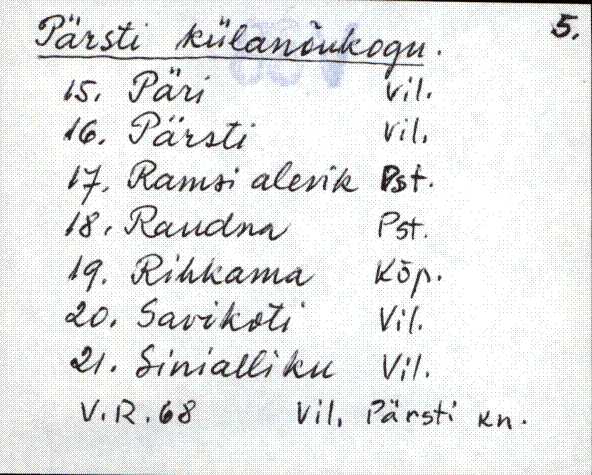 Pärsti külanõukogu. 5.
15. Päri Vil.
16. Pärsti Vil.
17. Ramsi alevik Pst.
18. Raudna Pst.
19. Rihkama Kõp.
20. Savikoti Vil.
21. Sinialliku Vil.
V.R.68 Vil. Pärsti kn.